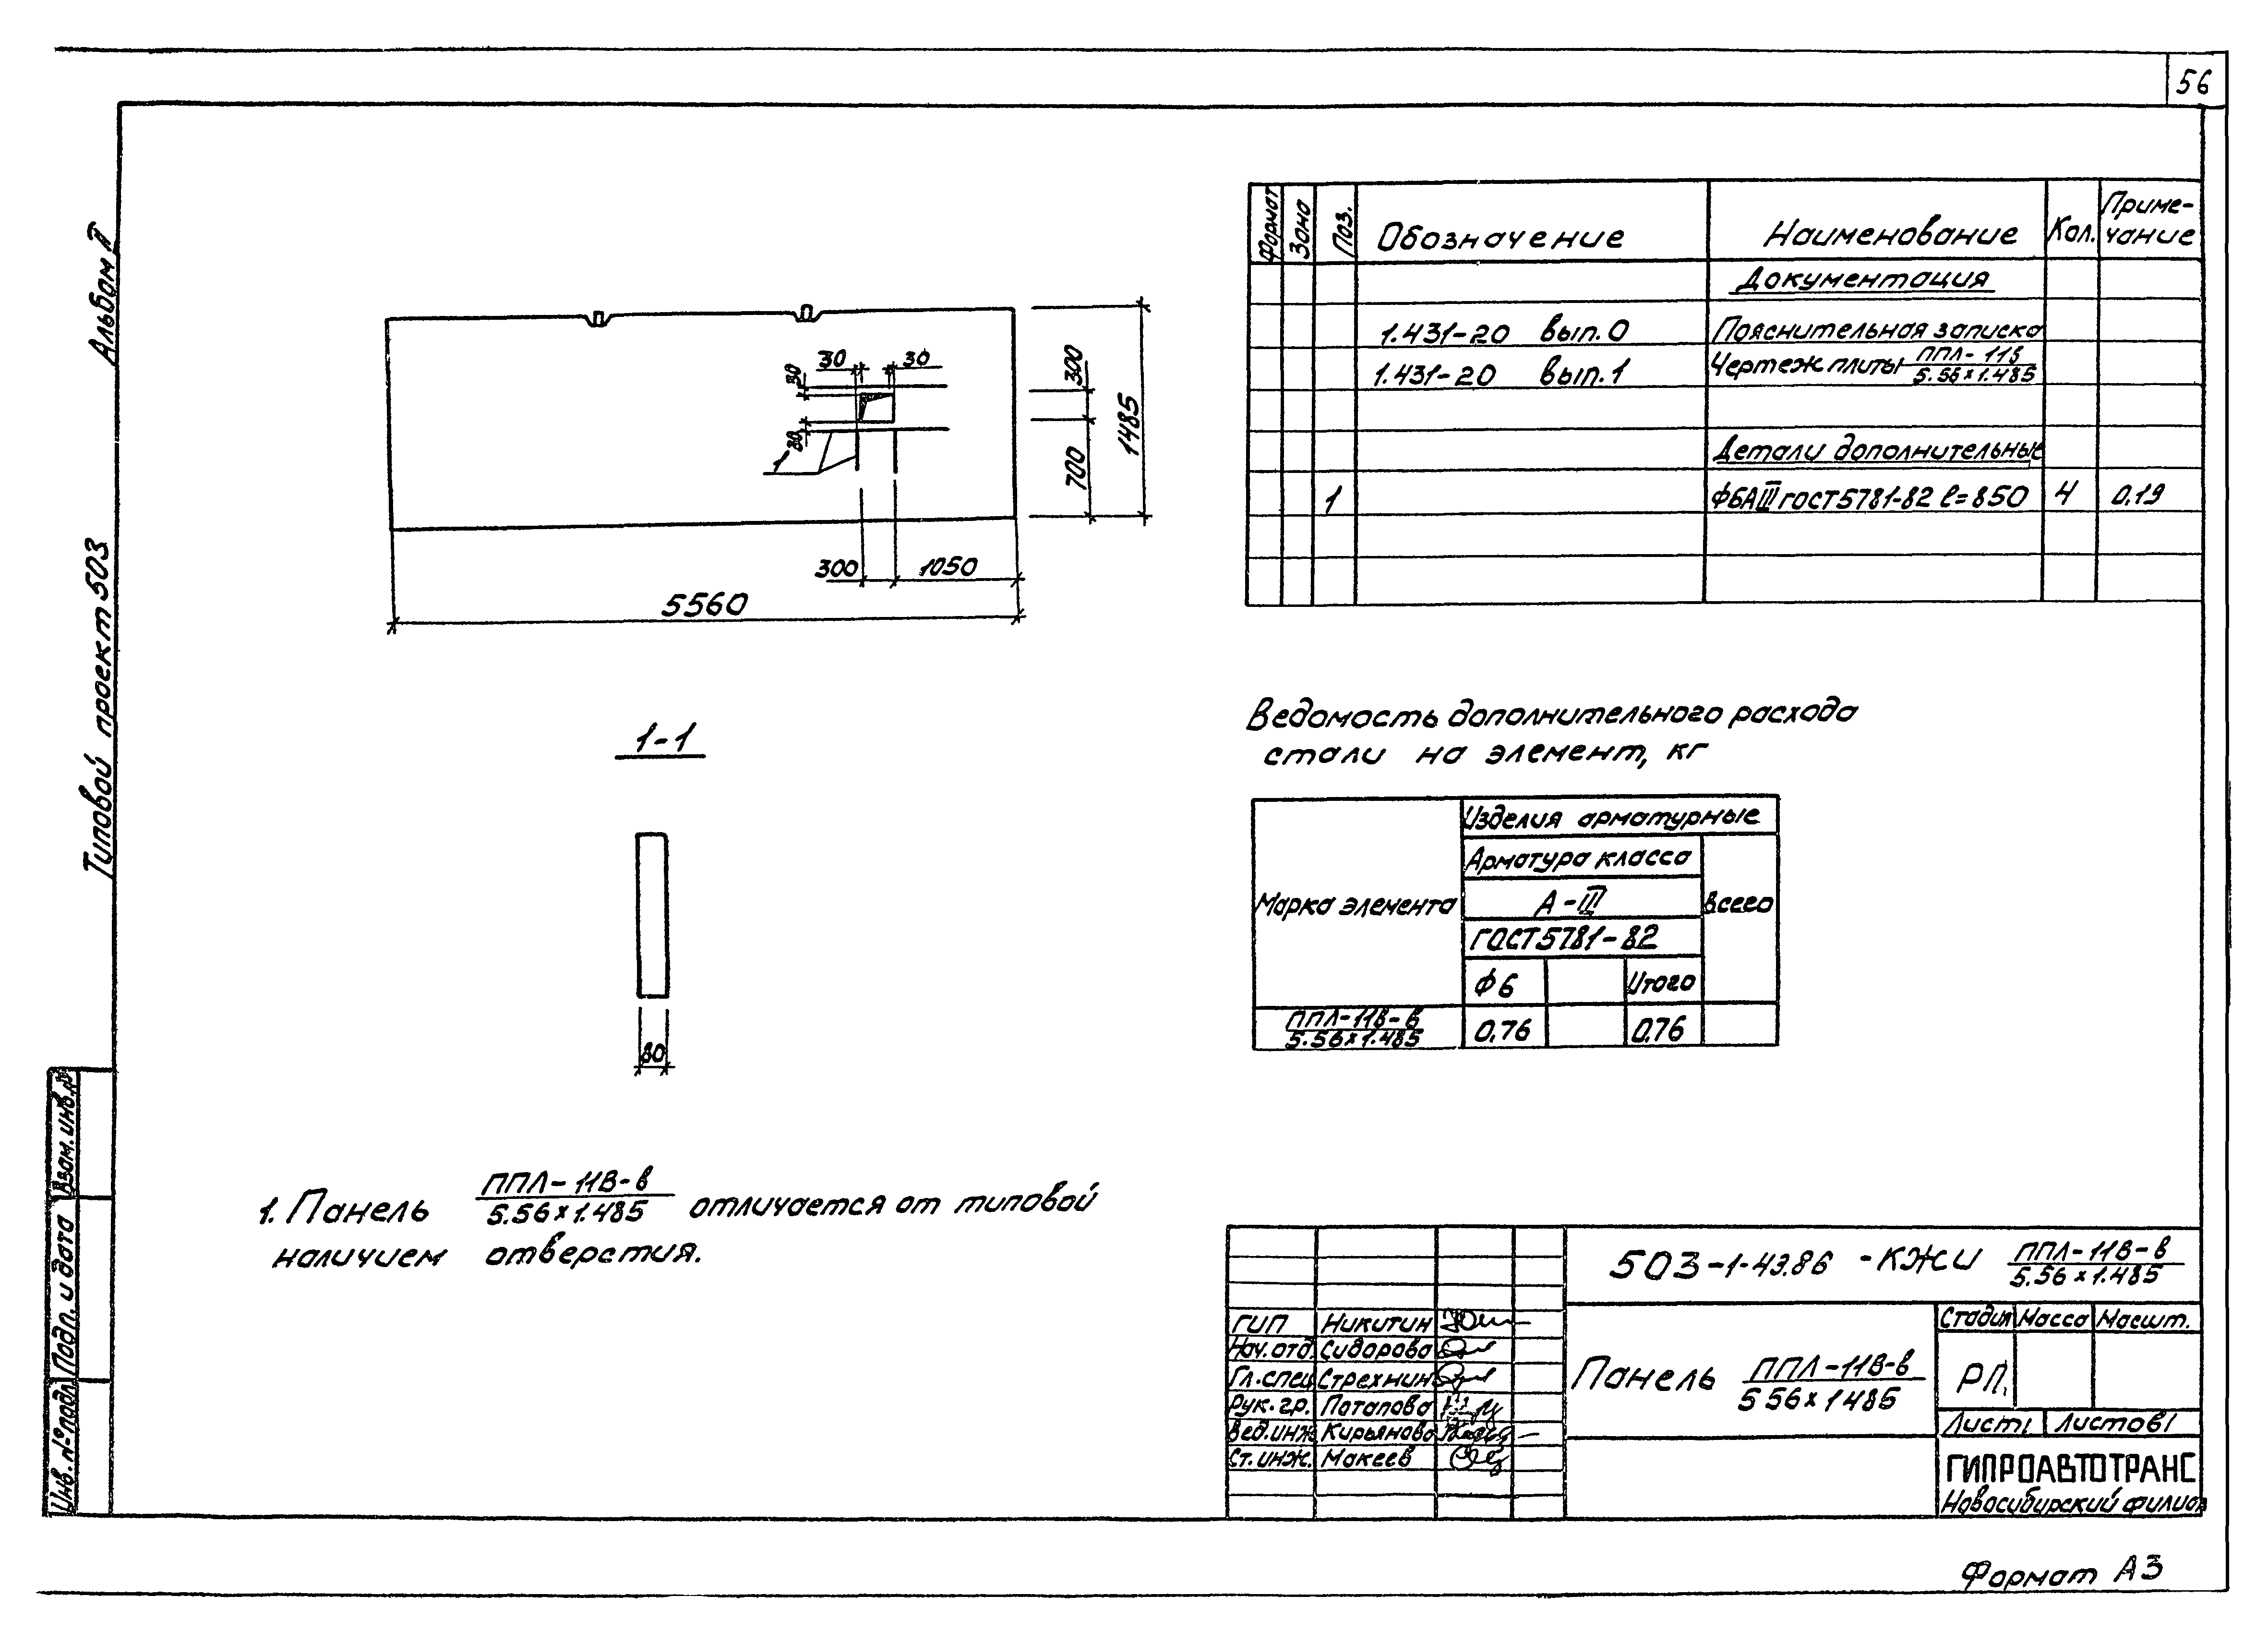 56
Альбом II
Типовой проект 503
Взам. инв. №
Подп. и дата
Инв. № подл.
30 30
30
30
1
300
700
1485
300 1050
5560
1-1
80
1. Панель ППЛ-11В-в / 5.56×1.485 отличается от типовой
наличием отверстия.
Формат Зона Поз. Обозначение Наименование Кол. Приме-
чание
Документация
1.431-20 вып.0 Пояснительная записка
1.431-20 вып.1 Чертеж плиты ППЛ-11в / 5.56×1.485
Детали дополнительные
1 Ф6АIII ГОСТ5781-82 ℓ=850 4 0.19
Ведомость дополнительного расхода
стали на элемент, кг
Марка элемента Изделия арматурные
Арматура класса
А-III
ГОСТ5781-82
Всего
Ф6 Итого
ППЛ-11В-в / 5.56×1.485 0,76 0,76
503-1-43.86 -КЖИ ППЛ-11В-в / 5.56×1.485
ГИП Никитин
Нач.отд. Сидорова
Гл.спец Стрехнин
Рук.гр. Потапова
Вед.инж Кирьянова
Ст.инж. Макеев
Панель ППЛ-11В-в / 5 56×1 485
Стадия Масса Масшт.
РП.
Лист 1 Листов 1
ГИПРОАВТОТРАНС
Новосибирский филиал
Формат А3